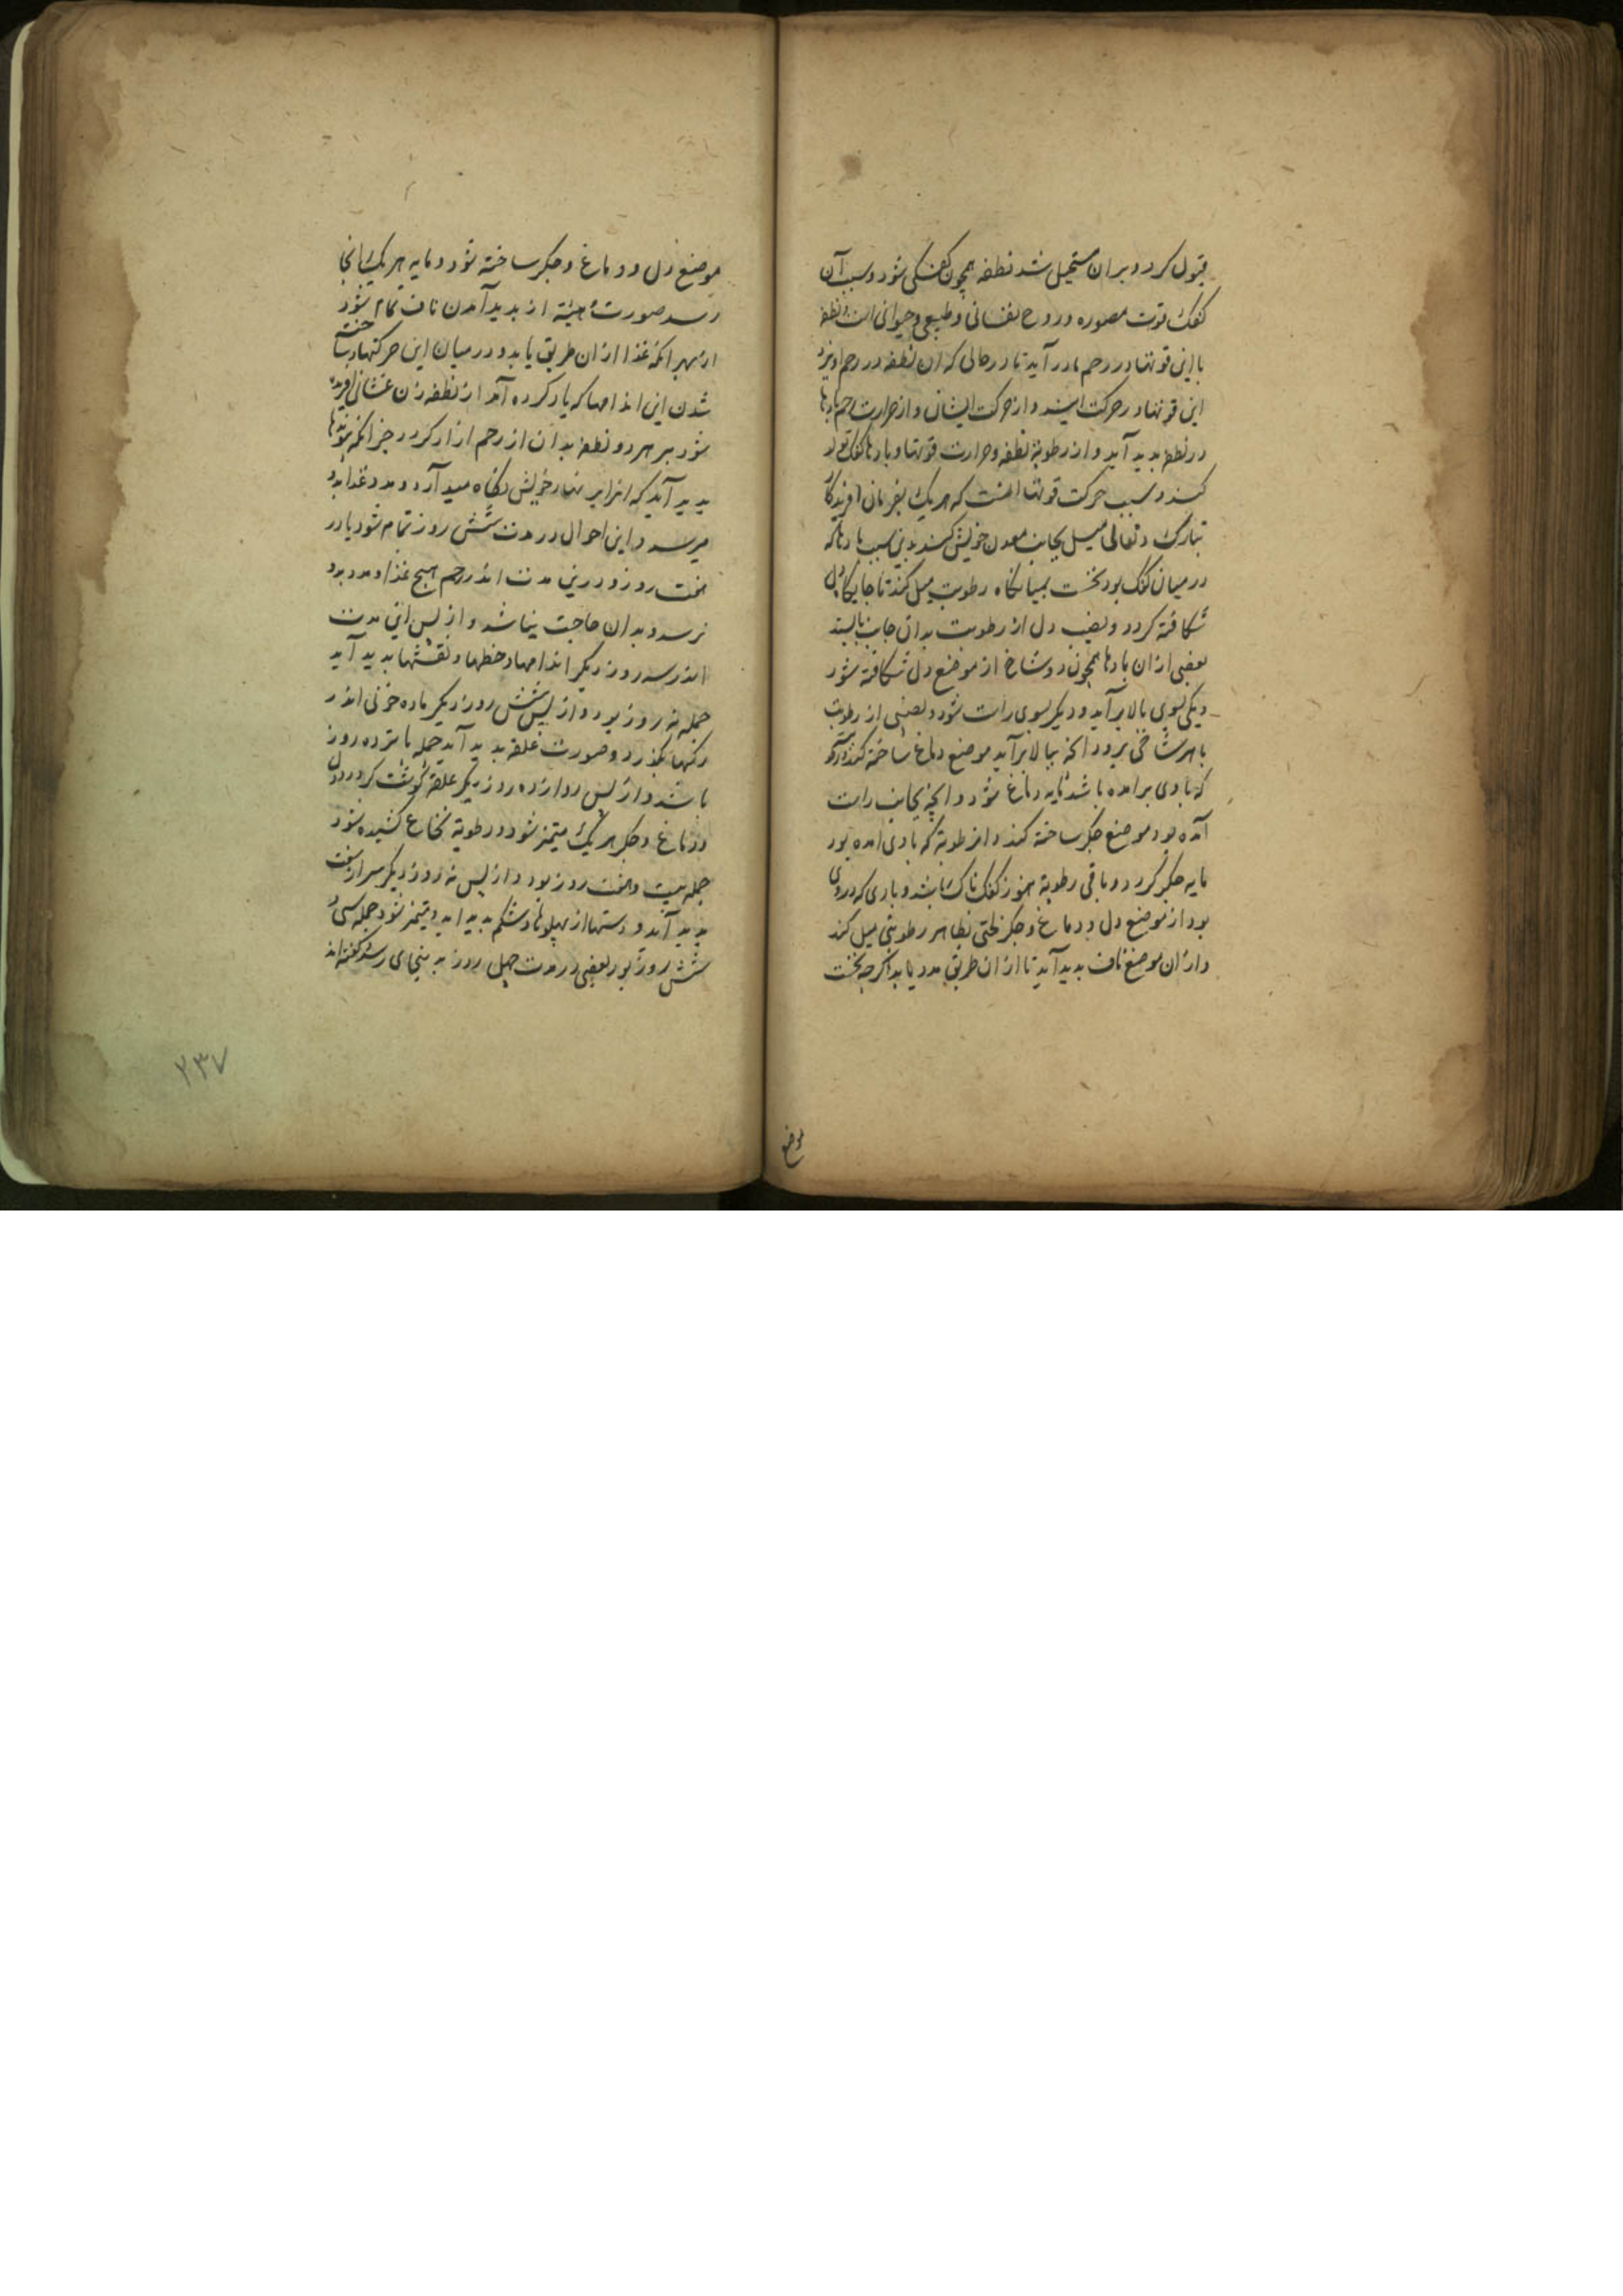 قبول کردد و بران مستحیل شد نطفه همچون کفکی شود و سبب آن
کفک قوت مصوره و روح نفسانی و طبیعی و حیوانی است نطفه
با این قوتها در رحم مادر آید تا در حالی که ان نطفه در رحم اویزد
این قوتها در حرکت ایند و از حرکت ایشان و از حرارت رحم بادها
در نطفه بدید آید و از رطوبة نطفه و حرارت قوتها و بادها کفک تولد
کند و سبب حرکت قوتها انست که هر یک بفرمان افریدکار
تبارک و تعالی میل بجانب معدن خویش کنند بدین سبب بادها که
در میان کفک بود نخست بمیانکاه رطوبت میل کند تا جایکاه دل
شکافته کردد و نصیب دل از رطوبت بدان جانب بایستد
بعضی ازان بادها همچون دو شاخ از موضع دل شکافته شود
ویکی بسوی بالا برآید و دیکر بسوی راست شود و بعضی از رطوبت
با هر شاخی برود انچه ببالا برآید موضع دماغ ساخته کند و از رطوبتی
که با وی برامده باشد مایه دماغ شود و انچه بجانب راست
آمده بود موضع جکر ساخته کند و از رطوبة که با وی امده بود
مایه جکر کردد و باقی رطوبة هنوز کفک ناک باشد و بادی که در وی
بود از موضع دل و دماغ و جکر لختی بظاهر رطوبتی میل کند
و ازان موضع ناف بدید آید تا ازان طریق مدد یابد اکرچه نخست
موضع
موضع دل و دماغ و جکر ساخته شود و مایه هر یک بانجا
رسد صورت از بدید آمدن ناف تمام شود
از بهر انکه غذا ازان طریق یابد و در میان این حرکتها و ساخته
شدن این اندامها که یاد کرده آمد از نطفه زن غشائی افریده
شود بر هر دو نطفه بدان از رحم ازاد کردد جز انکه پیوندها
بدید آید که انرا بر نهاد خویش نکاه میدارد و مدد غذا بدو
میرسد و این احوال در مدت شش روز تمام شود یا در
هفت روز و درین مدت اندر رحم هیچ غذا و مدد بدو
نرسد و بدان حاجت نباشد و از پس این مدت
اندر سه روز دیکر اندامها و خطها و نقشها بدید آید
جمله نه روز بود و از پس شش روز دیکر ماده خونی اندر
رکها بکذرد و صورت علقه بدید آید جمله پانزده روز
باشد و از پس دوازده روز دیکر علقه کوشت کردد و دل
و دماغ و جکر هر یک متمیز شود و رطوبة نخاع کشیده شود
جمله بیست و هفت روز بود و از پس نه روز دیکر سر از سفت
بدید آید و دستها از پهلوها و شکم بدید اید و متمیز شود جمله سی و
شش روز بود و بعضی در مدت چهل روز بدینجای رسد و کفته اند
۲۳۷